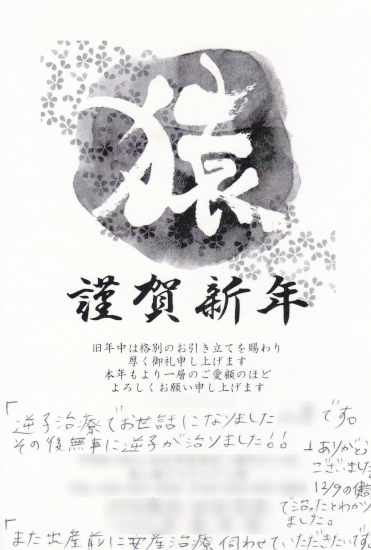 猿
謹賀新年
旧年中は格別のお引き立てを賜わり
厚く御礼申し上げます
本年もより一層のご愛顧のほど
よろしくお願い申し上げます
「逆子治療でお世話になりました です。
その後無事に逆子が治りました!!
ありがとう
ございました
12/9の健診
で治ったとわかり
ました。
「また出産前に安産治療伺わせていただきたいです